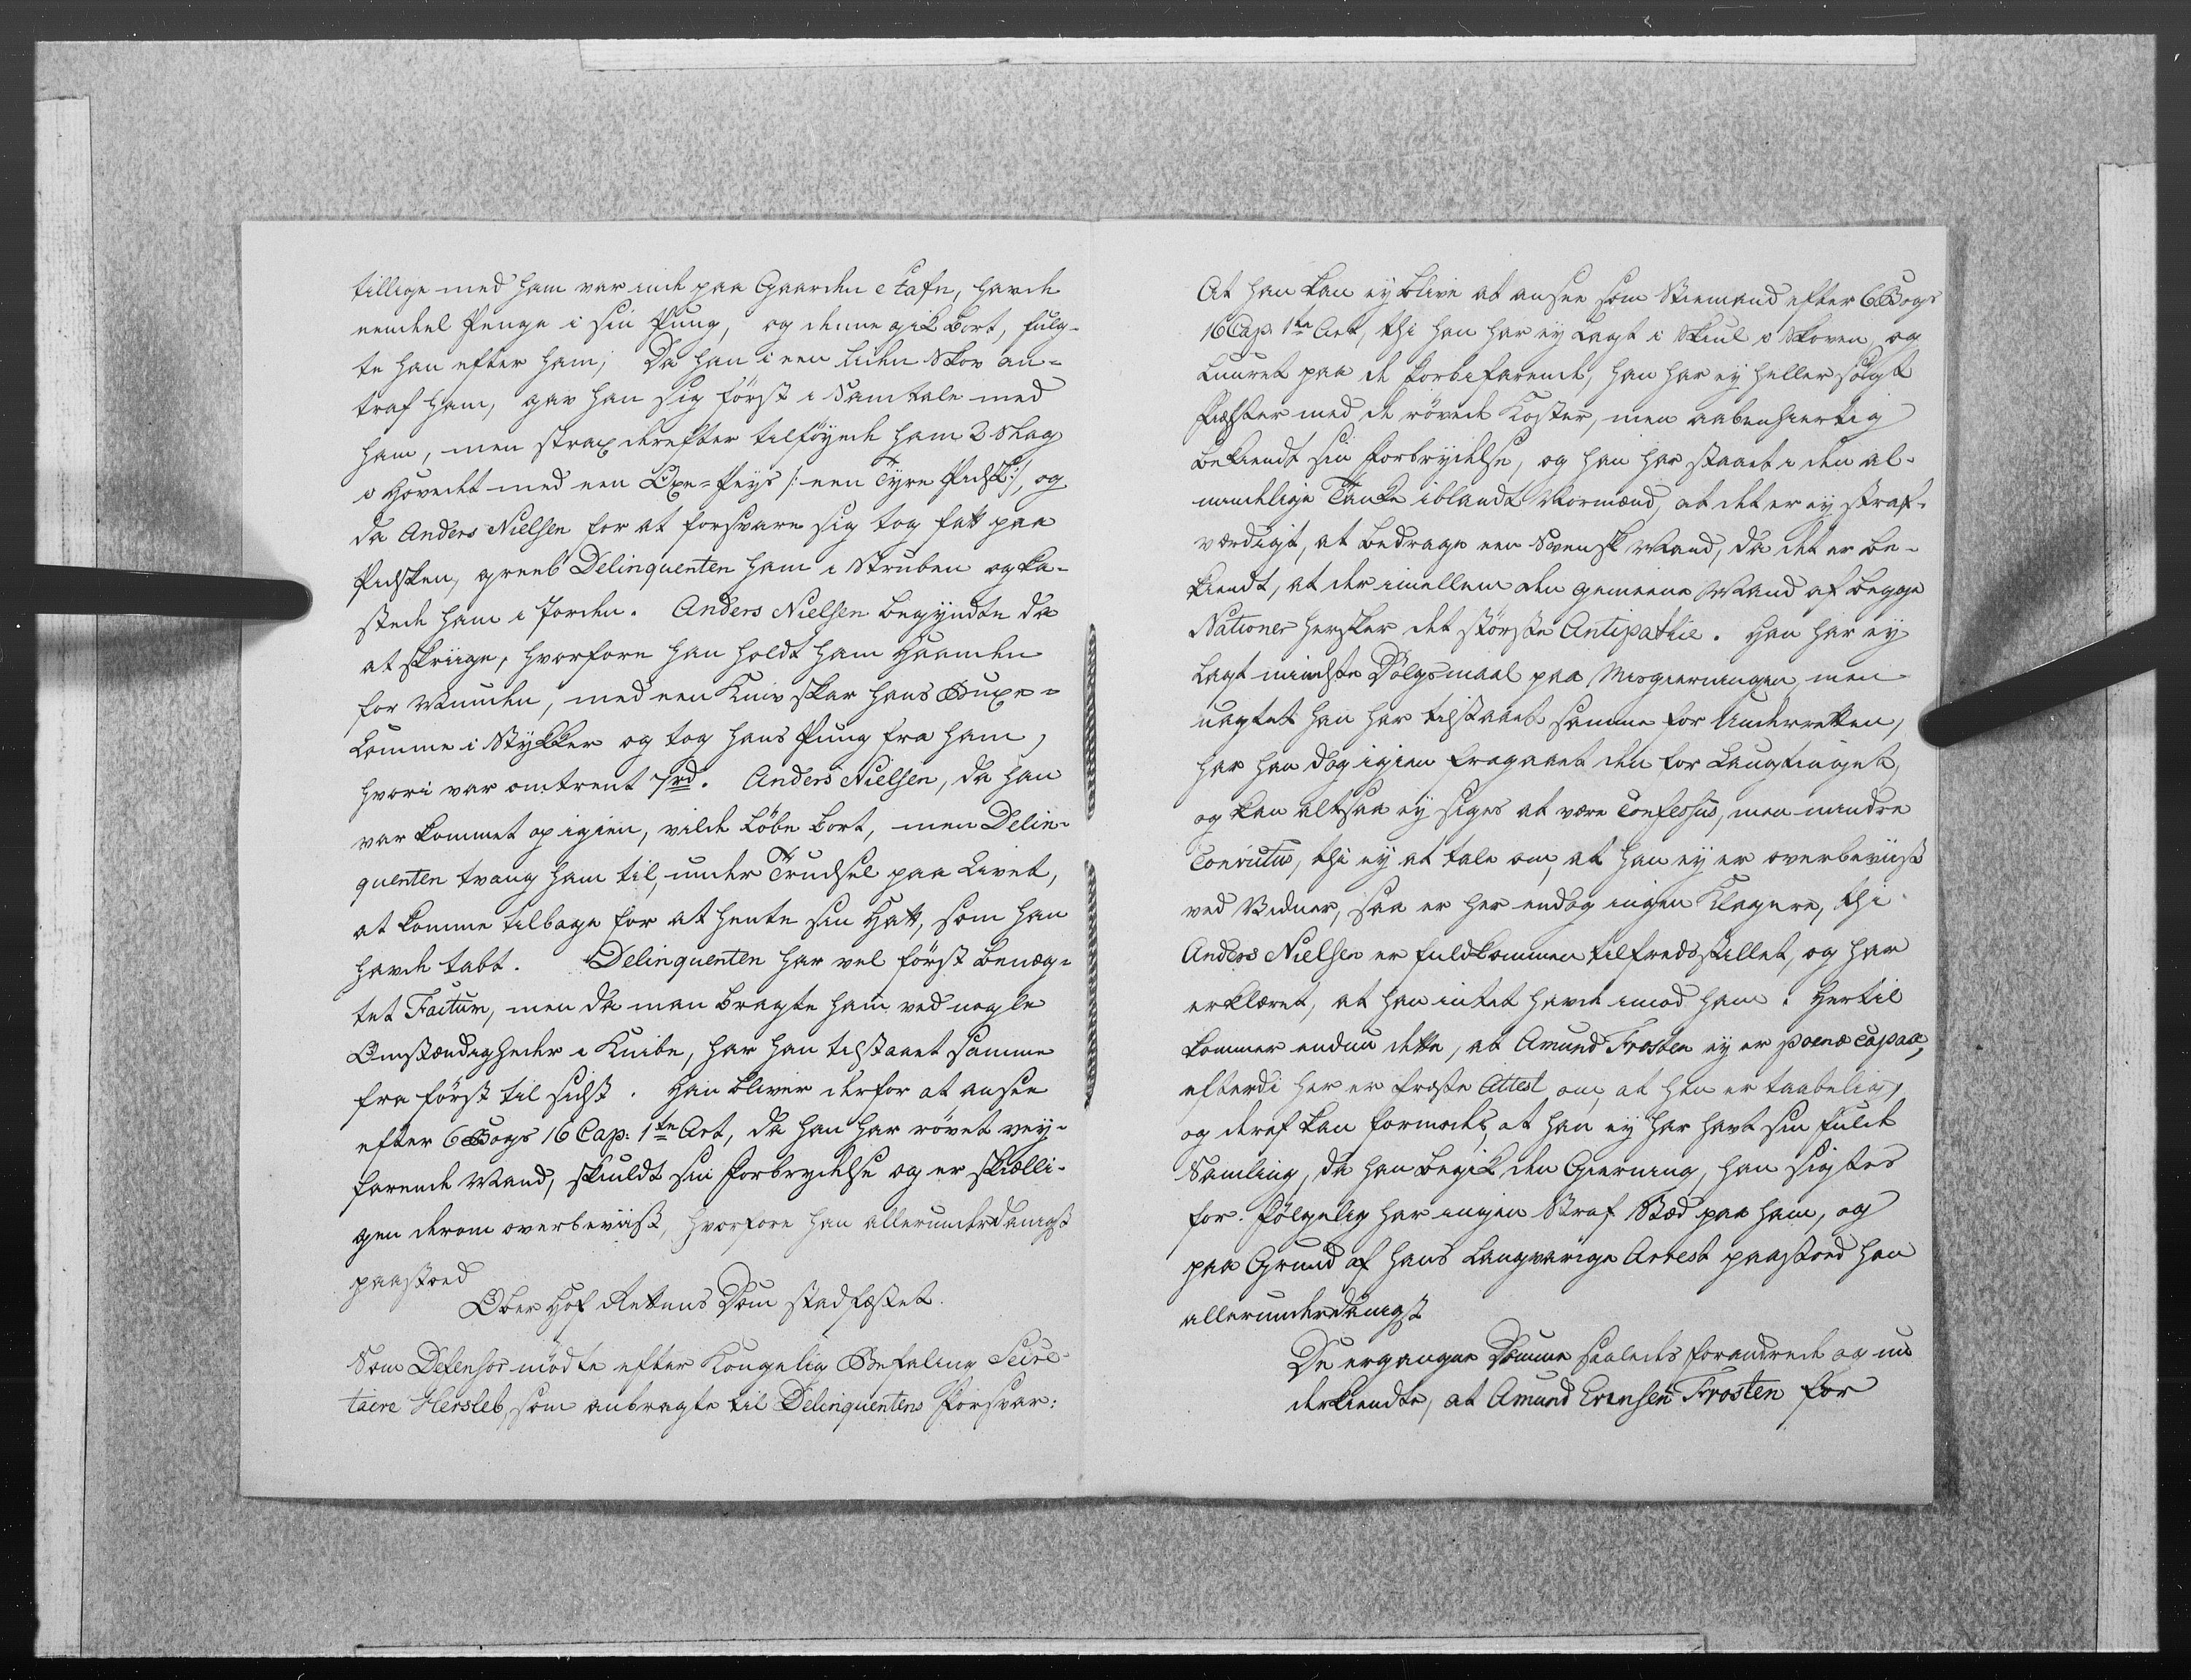 tillige med ham var inde paa Gaarden Stafn, havde
eendeel Penge i sin Pung, og denne gik bort, fulg-
te han efter ham; Da han i een liden Skov an-
traf ham, gav han sig först i Samtale med
ham, men strax derefter tilföyede ham 2 Slag
i Hovedet med een Oxe-Peys /: een Tyre Pidsk :/, og
da Anders Nielsen for at forsvare sig tog fatt paa
Pidsken, greeb Delinquenten ham i Struben og ka-
stede ham i Jorden. Anders Nielsen begyndte da
at skriige, hvorfore han holdt ham Haanden
for Munden, med een Kniv skar hans Buxe-
Lomme i Stykker og tog hans Pung fra ham,
hvori var omtrent 7rd. Anders Nielsen, da han
var kommet op igien, vilde löbe bort, men Delin-
quenten tvang ham til, under Trudsel paa Livet,
at komme tilbage for at hente sin Hatt, som han
havde tabt. Delinquenten har vel först benæg-
tet Factum, men da man bragte ham ved nogle
Omstændigheder i Knibe, har han tilstaaet samme
fra först til sidst. Han bliver derfor at ansee
efter 6 Bogs 16 Cap: 1te Art, da han har rövet vey-
farende Mand, skiuldt sin Forbrydelse og er skielli-
gen derom overbeviist, hvorfore han allerunderdanigst
paastoed
Ober Hof Rettens Dom stadfæstet.
Som Defensor mödte efter Kongelig Befaling Secre-
taire Hersleb, som anbragte til Delinquentens Forsvar:
At han kan ey blive at ansee som Stiemand efter 6 Bogs
16 Cap. 1te Art, thi han har ey Lagt i Skiul i Skoven og
Luuret paa de forbifarende, han har ey heller sögt
med de rövede Koster, men aabenhiertig
bekiendt sin Forbrydelse, og han har staaet i den al-
mindelige Tanke iblandt Normænd, at det er ey straf-
værdigt, at bedrage een Svensk Mand, da det er be-
kiendt, at der imellem den gemeene Mand af begge
Nationer hersker det störste Antipathie. Han har ey
lagt mindste Dölgsmaal paa Misgierningen, men
uagtet han har tilstaaet samme for Underretten,
har han dog igien fragaaet den for Laugtinget,
og kan altsaa ey siges at være Confessus, men mindre
Convictus, thi ey at tale om, at han ey er overbeviist
ved Vidner, saa er her endog ingen Klagere, thi
Anders Nielsen er fuldkommen tilfredsstillet, og har
erklæret, at han intet havde imod ham. Hertil
kommer endnu dette, at Amund Frosten ey er poenæ capax,
efterdi her er Attest om, at han er taabelig,
og deraf kan formodes, at han ey har havt sin fulde
Samling, da han begik den Gierning, han sigtes
for. Fölgelig har ingen Straf Stæd paa ham, og
paa Grund af hans Langvarige Arrest paastoed han
allerunderdanigst
De ergangne Domme saaledes forandrede og nu
derkiendte, at Amund Evensen Frosten for